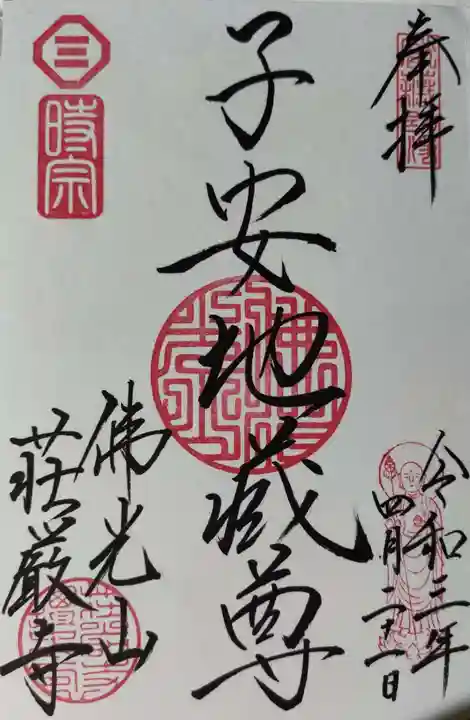 奉拝
令和三年
四月二十一日
子安地蔵尊
三
時宗
佛光山
荘厳寺